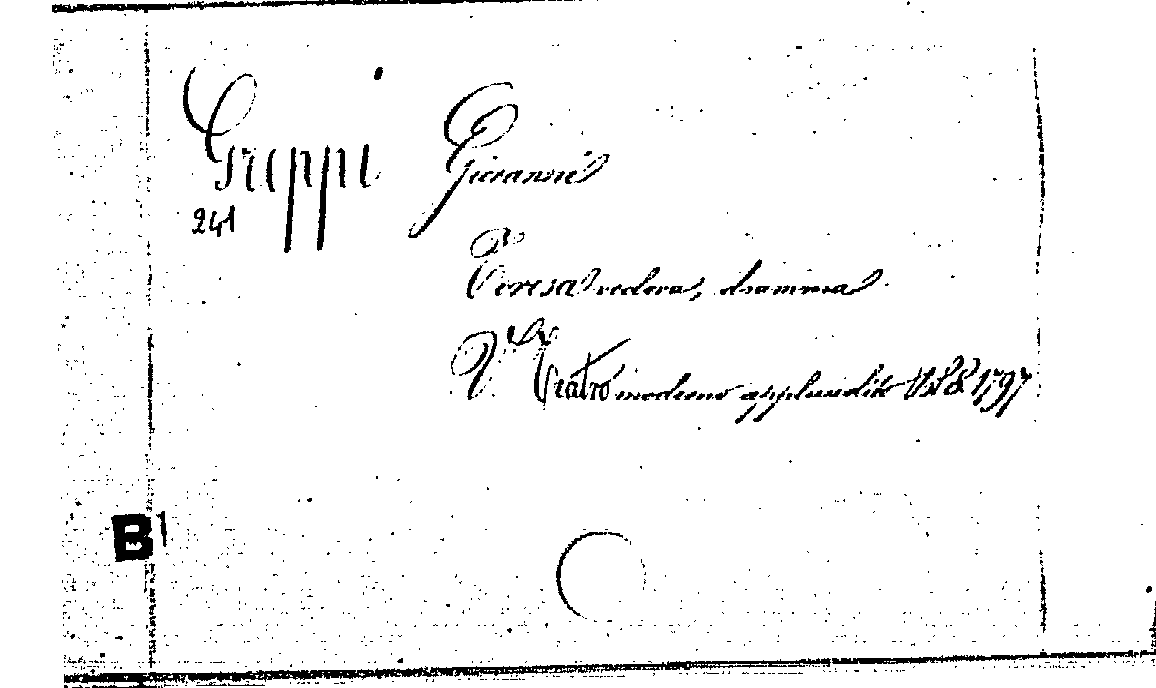 Greppi Giovanni
241
Teresa vedova, dramma
V. Teatro moderno applaudito Vol 8 1797
B1